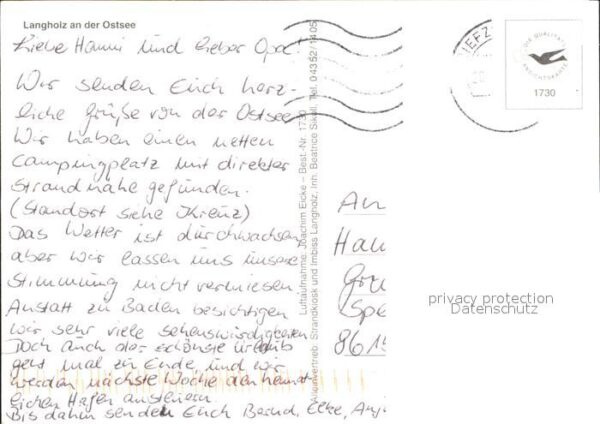 Langholz an der Ostsee
Liebe Hanni und lieber Opa!
Wir senden Euch herz-
liche Grüße von der Ostsee.
Wir haben einen netten
Campingplatz mit direkter
Strandnähe gefunden.
(Standort siehe Kreuz)
Das Wetter ist durchwachsen,
aber wir lassen uns unsere
Stimmung nicht vermiesen.
Anstatt zu Baden besichtigen
wir sehr viele Sehenswürdigkeiten
Doch auch der schönste Urlaub
geht mal zu Ende, und wir
werden nächste Woche den heimat-
lichen Hafen ansteuern.
Bis dahin senden Euch Bernd, Elke,
Luftaufnahme: Joachim Eicke – Best.-Nr. 1730
Alleinvertrieb: Strandkiosk und Imbiss Langholz, Inh. Beatrice Tel. 04352/1405
DIE QUALITÄTS
ANSICHTSKARTE
1730
An
Han
Gru
Spe
861
privacy protection
Datenschutz